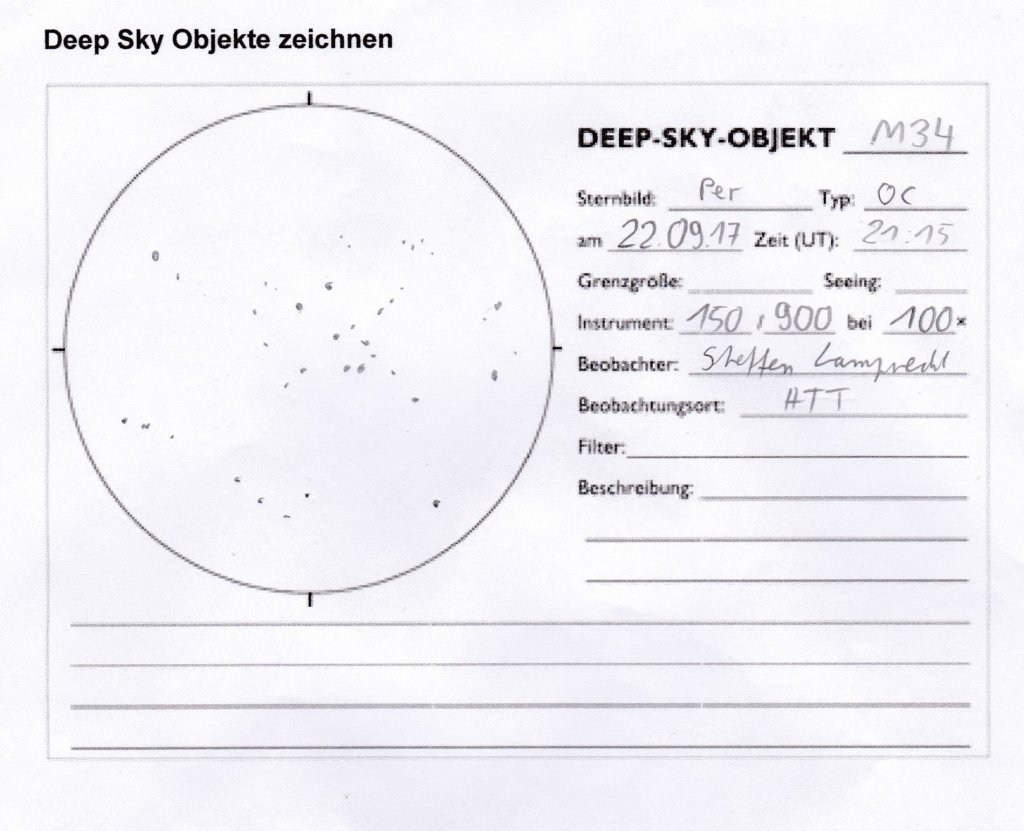 Deep Sky Objekte zeichnen
DEEP-SKY-OBJEKT M34
Sternbild: Per Typ: OC
am 22.09.17 Zeit (UT): 21:15
Grenzgröße: Seeing:
Instrument: 150 / 900 bei 100×
Beobachter: Steffen Lamprecht
Beobachtungsort: HTT
Filter:
Beschreibung: